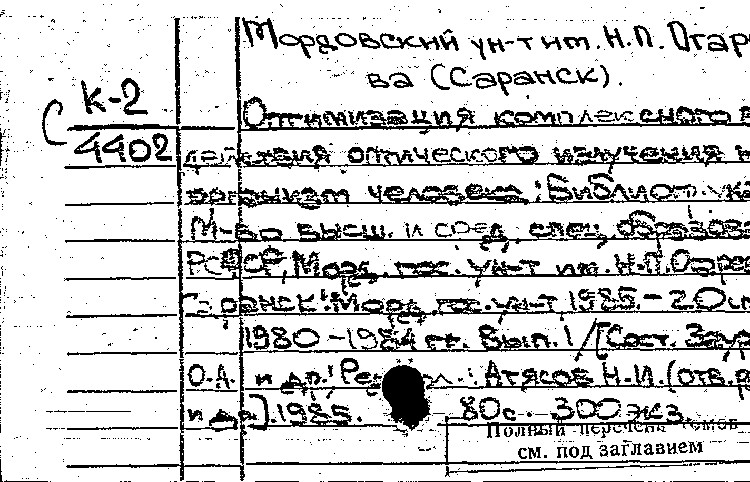 Мордовский ун-т им. Н.П. Огар
ва (Саранск).
К-2
Оптимизация комплексного в
4402
действия оптического излучения н
организм человека: Библиогр. ука
М-во высш. и сред. спец. образова
РСФСР, Морд. гос. ун-т им. Н.П. Огаре
Саранск: Морд. гос. ун-т, 1985. - 20 см
1980-1984 гг. Вып. 1 / [Сост.
О.А. и др.: Ред Атясов Н.И. (отв. р
и др.]. 1985. 80с. 300 экз.
Полный перечень томов
см. под заглавием